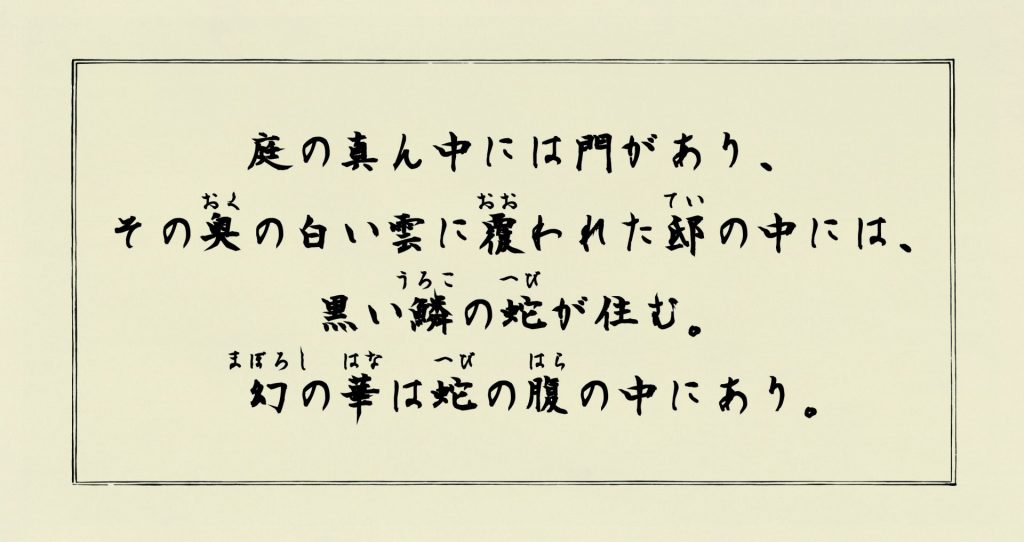 庭の真ん中には門があり、
その奥の白い雲に覆われた邸の中には、
黒い鱗の蛇が住む。
幻の華は蛇の腹の中にあり。
おく おお てい
うろこ へび
まぼろし はな へび はら